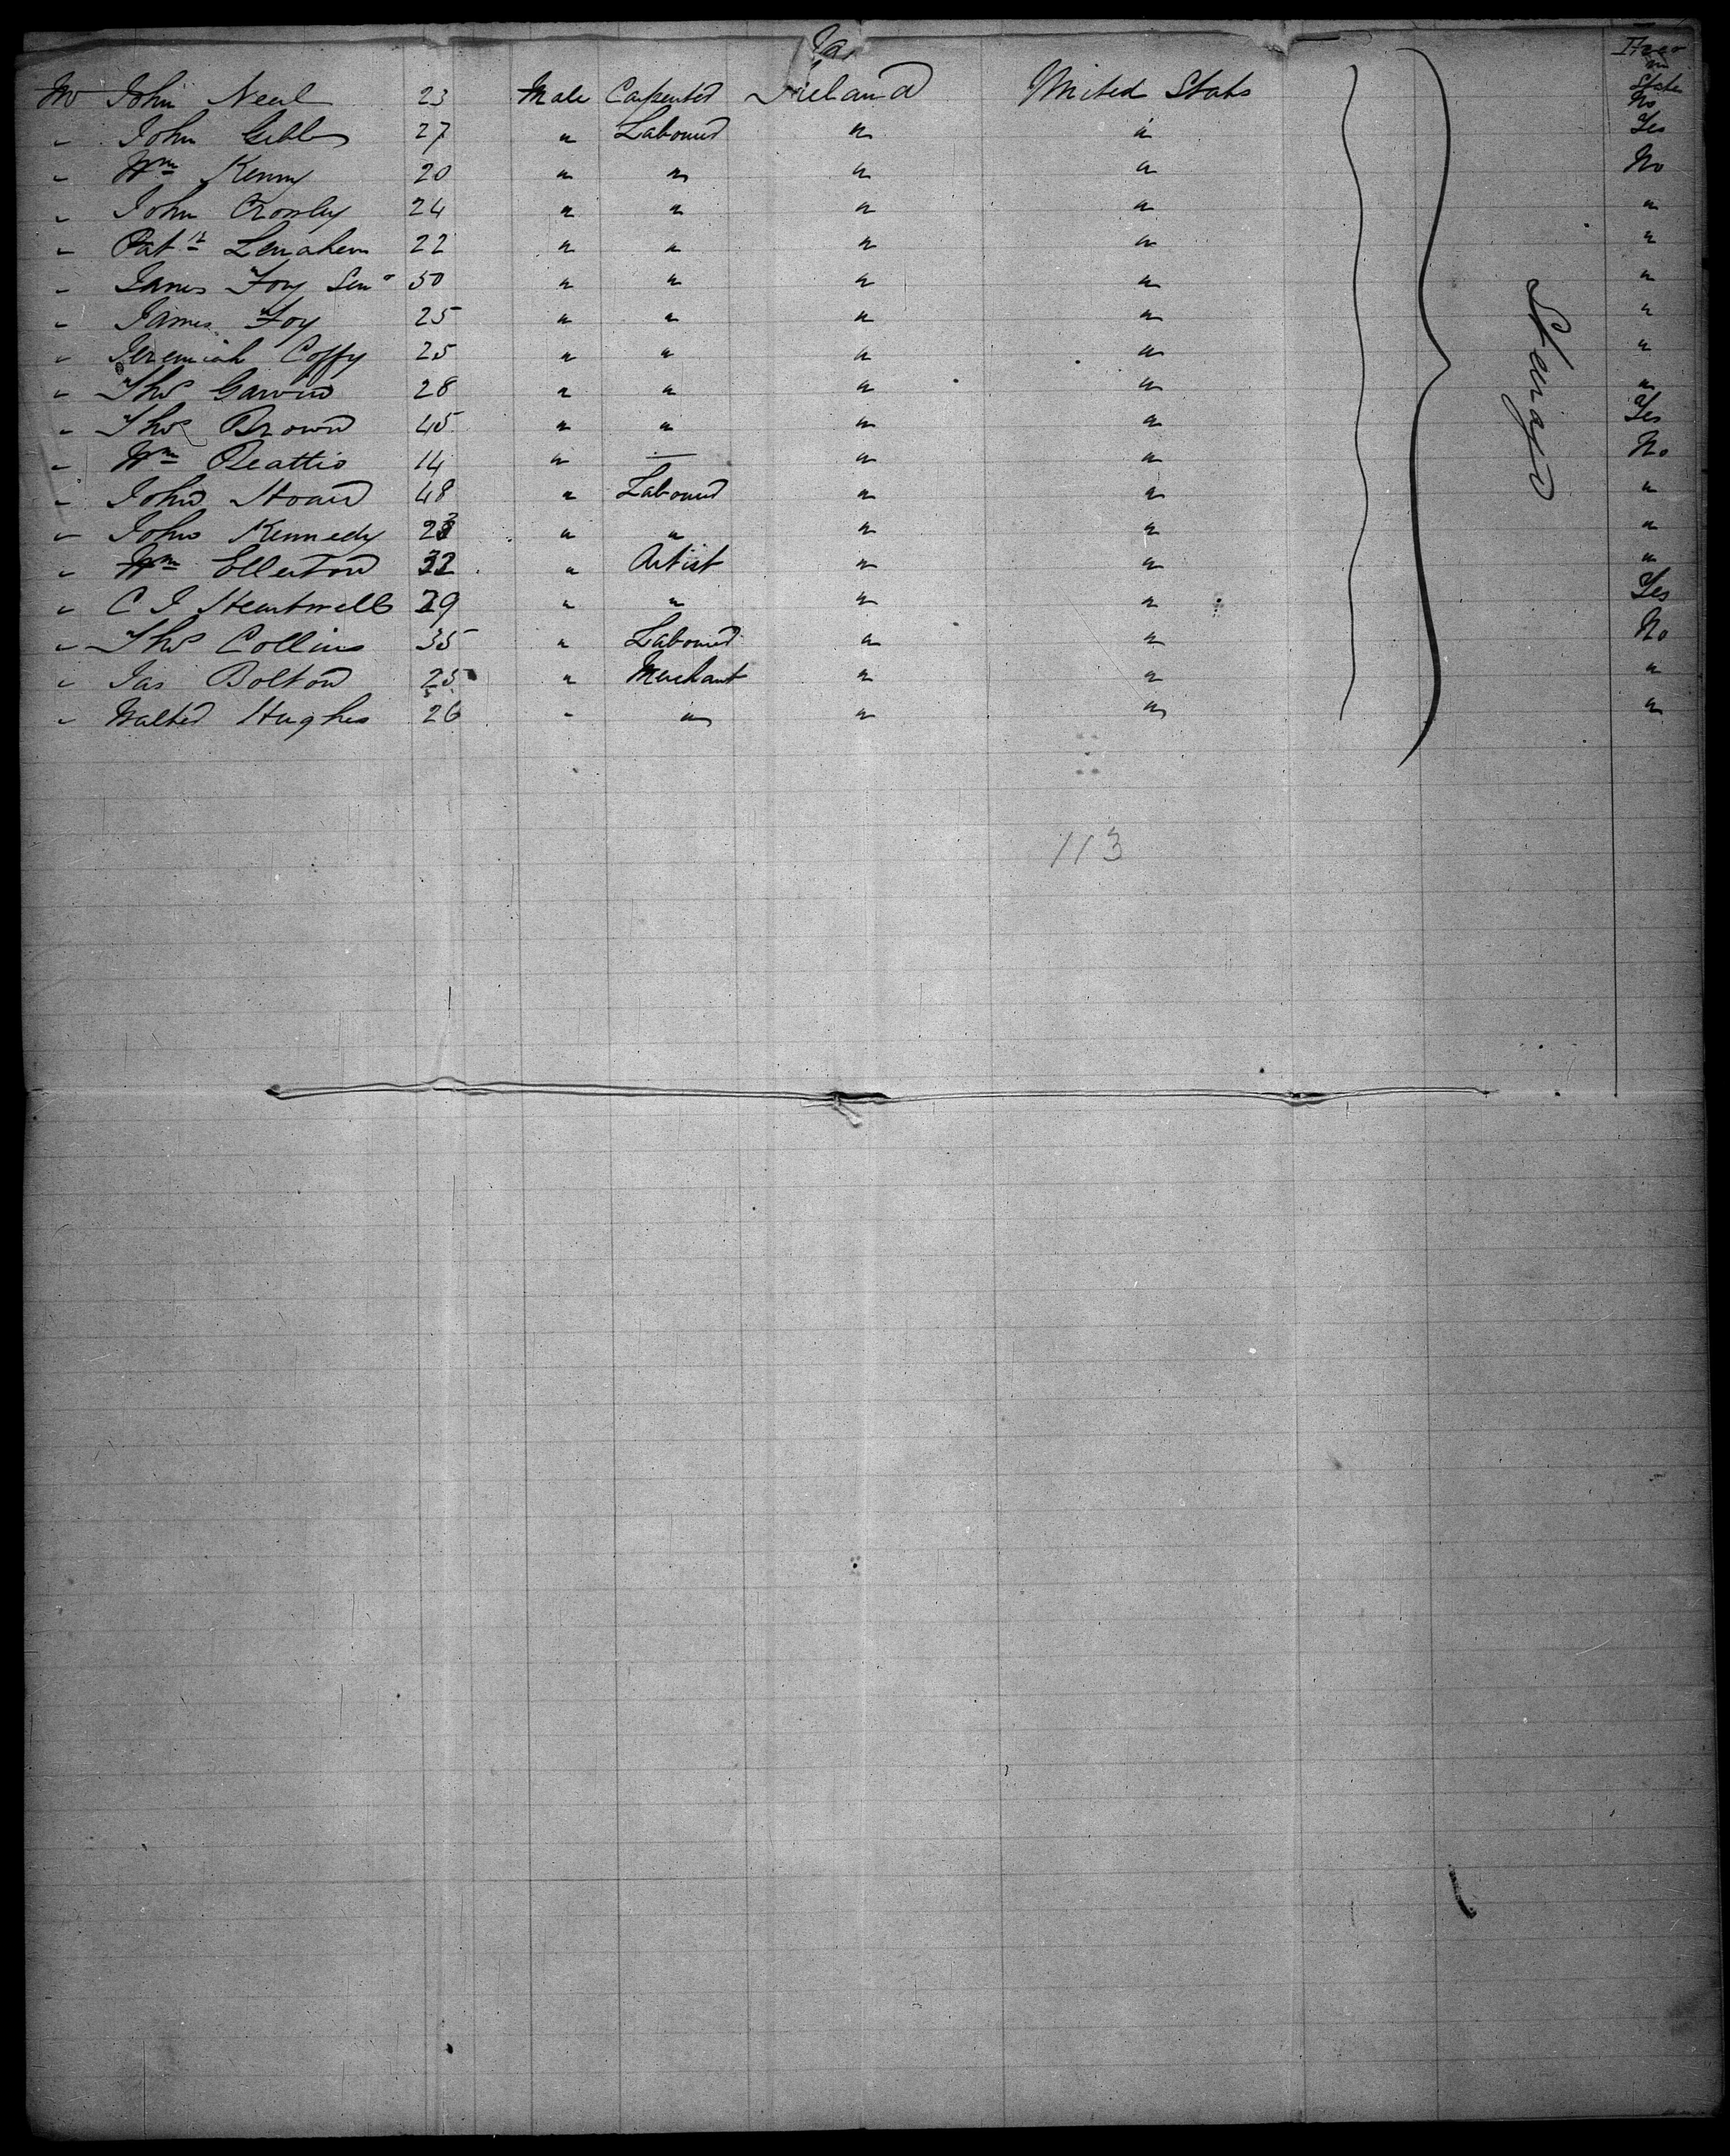 Mr John Neul 23 Male Carpenter Ireland United States No
" John Gibbs 27 " Labourer " " Yes
" Wm Kenny 20 " " " " No
" John Crowley 24 " " " " "
" Patk Lenahen 22 " " " " "
" James Foy Senr 50 " " " " "
" James Foy 25 " " " " "
" Jeremiah Coffy 25 " " " " "
" Thos Garvin 28 " " " " "
" Thos Brown 45 " " " " Yes
" Wm Beattie 14 " — " " No
" John Hoard 48 " Labourer " " "
" John Kennedy 23 " " " " "
" Wm Ellerton 32 " Artist " " "
" C J Heartwell 29 " " " " Yes
" Thos Collins 35 " Labourer " " No
" Jas Bolton 25 " Merchant " " "
" Walter Hughes 26 " " " " "
Steerage
113